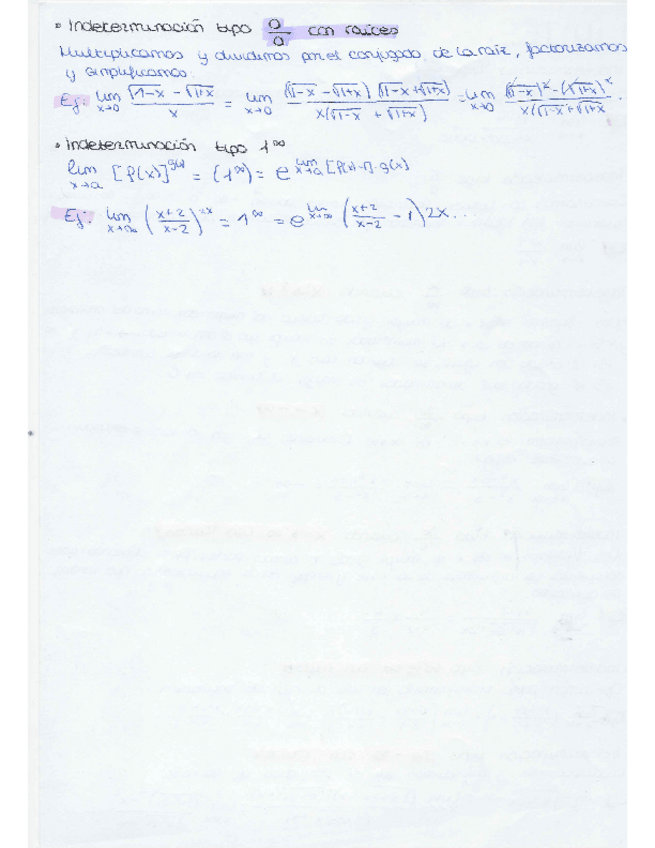 • Indeterminación tipo 0/0 con raíces
Multiplicamos y dividimos por el conjugado de la raíz, factorizamos
y simplificamos.
Ej: lim x→0 (√1-x - √1+x)/x = lim x→0 (√1-x - √1+x)(√1-x + √1+x)/x(√1-x + √1+x) = lim x→0 (√1-x)² - (√1+x)²/x(√1-x + √1+x).
• Indeterminación tipo 1^∞
lim x→a [f(x)]^g(x) = (1^∞) = e^lim x→a [f(x)-1]·g(x)
Ej: lim x→∞ (x+2/x-2)^2x = 1^∞ = e^lim x→∞ (x+2/x-2 - 1)2x...